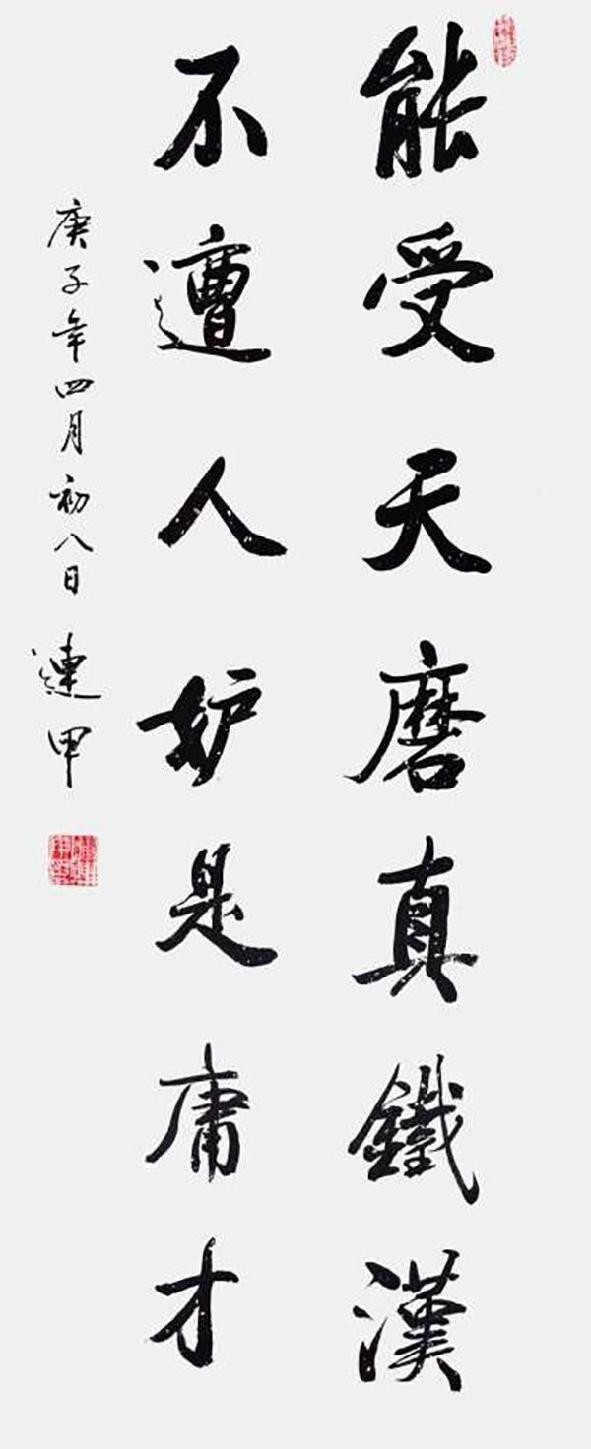 能受天磨真鐵漢
不遭人妒是庸才
庚子年四月初八日 連甲